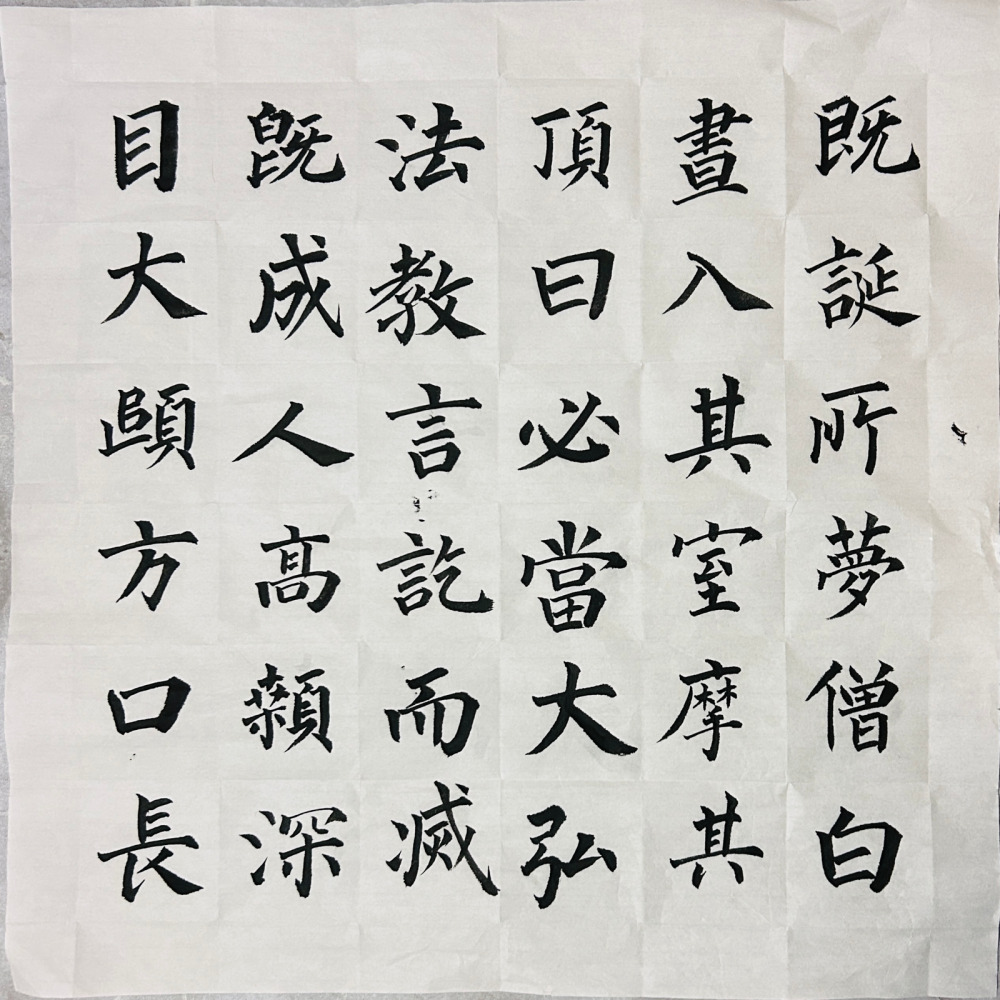 既誕所夢僧白
晝入其室摩其
頂曰必當大弘
法教言訖而滅
既成人高顙深
目大頤方口長